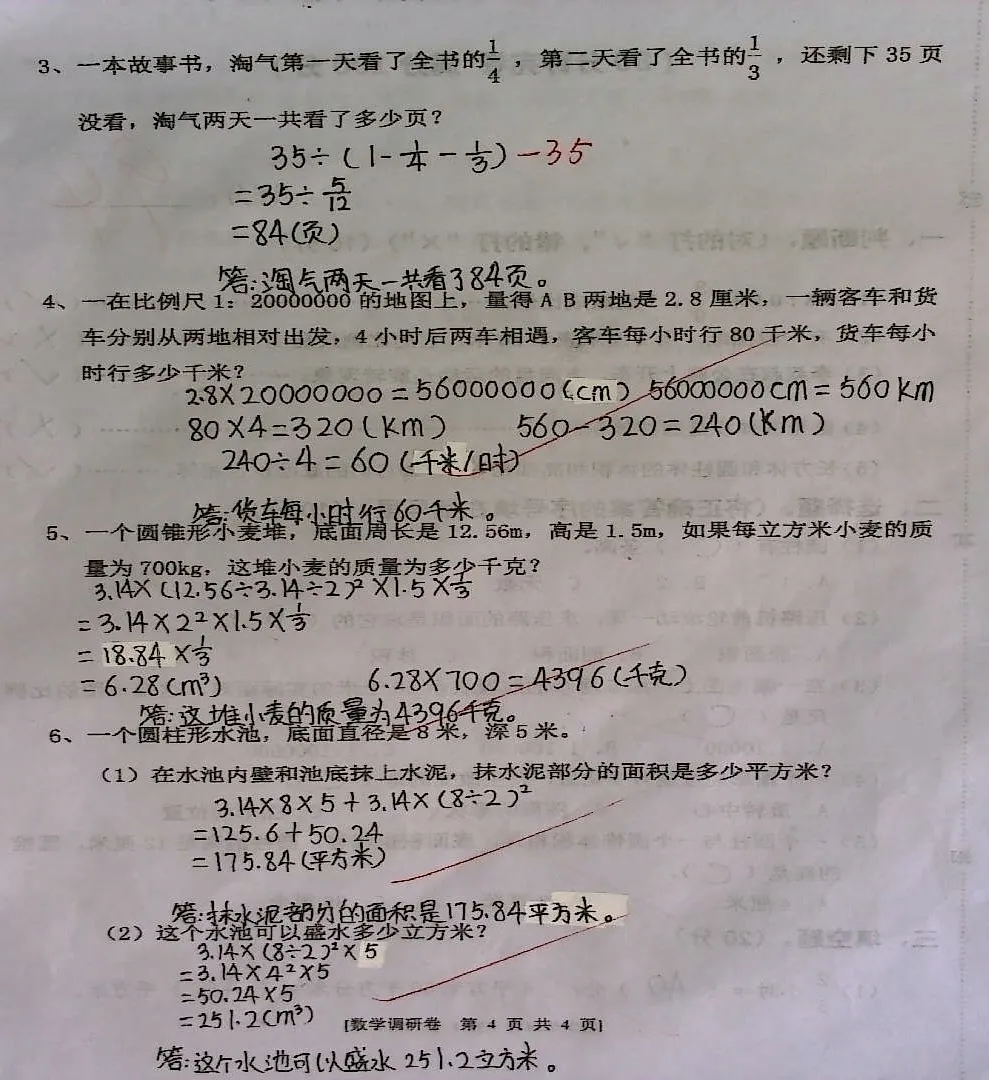 3、一本故事书，淘气第一天看了全书的1/4，第二天看了全书的1/3，还剩下 35 页
没看，淘气两天一共看了多少页？
35÷(1-1/4-1/3)-35
=35÷5/12
=84(页)
答:淘气两天一共看了84页。
4、一在比例尺 1：20000000 的地图上，量得 A B 两地是 2.8 厘米，一辆客车和货
车分别从两地相对出发，4 小时后两车相遇，客车每小时行 80 千米，货车每小
时行多少千米？
2.8×20000000=56000000(cm) 56000000cm=560km
80×4=320(km) 560-320=240(km)
240÷4=60(千米/时)
答:货车每小时行60千米。
5、一个圆锥形小麦堆，底面周长是 12.56m，高是 1.5m，如果每立方米小麦的质
量为 700kg，这堆小麦的质量为多少千克？
3.14×(12.56÷3.14÷2)²×1.5×1/3
=3.14×2²×1.5×1/3
=18.84×1/3
=6.28(m³) 6.28×700=4396(千克)
答:这堆小麦的质量为4396千克。
6、一个圆柱形水池，底面直径是 8 米，深 5 米。
（1）在水池内壁和池底抹上水泥，抹水泥部分的面积是多少平方米？
3.14×8×5+3.14×(8÷2)²
=125.6+50.24
=175.84(平方米)
答:抹水泥部分的面积是175.84平方米。
（2）这个水池可以盛水多少立方米？
3.14×(8÷2)²×5
=3.14×4²×5
=50.24×5
=251.2(m³)
[数学调研卷 第 4 页 共 4 页]
答:这个水池可以盛水251.2立方米。